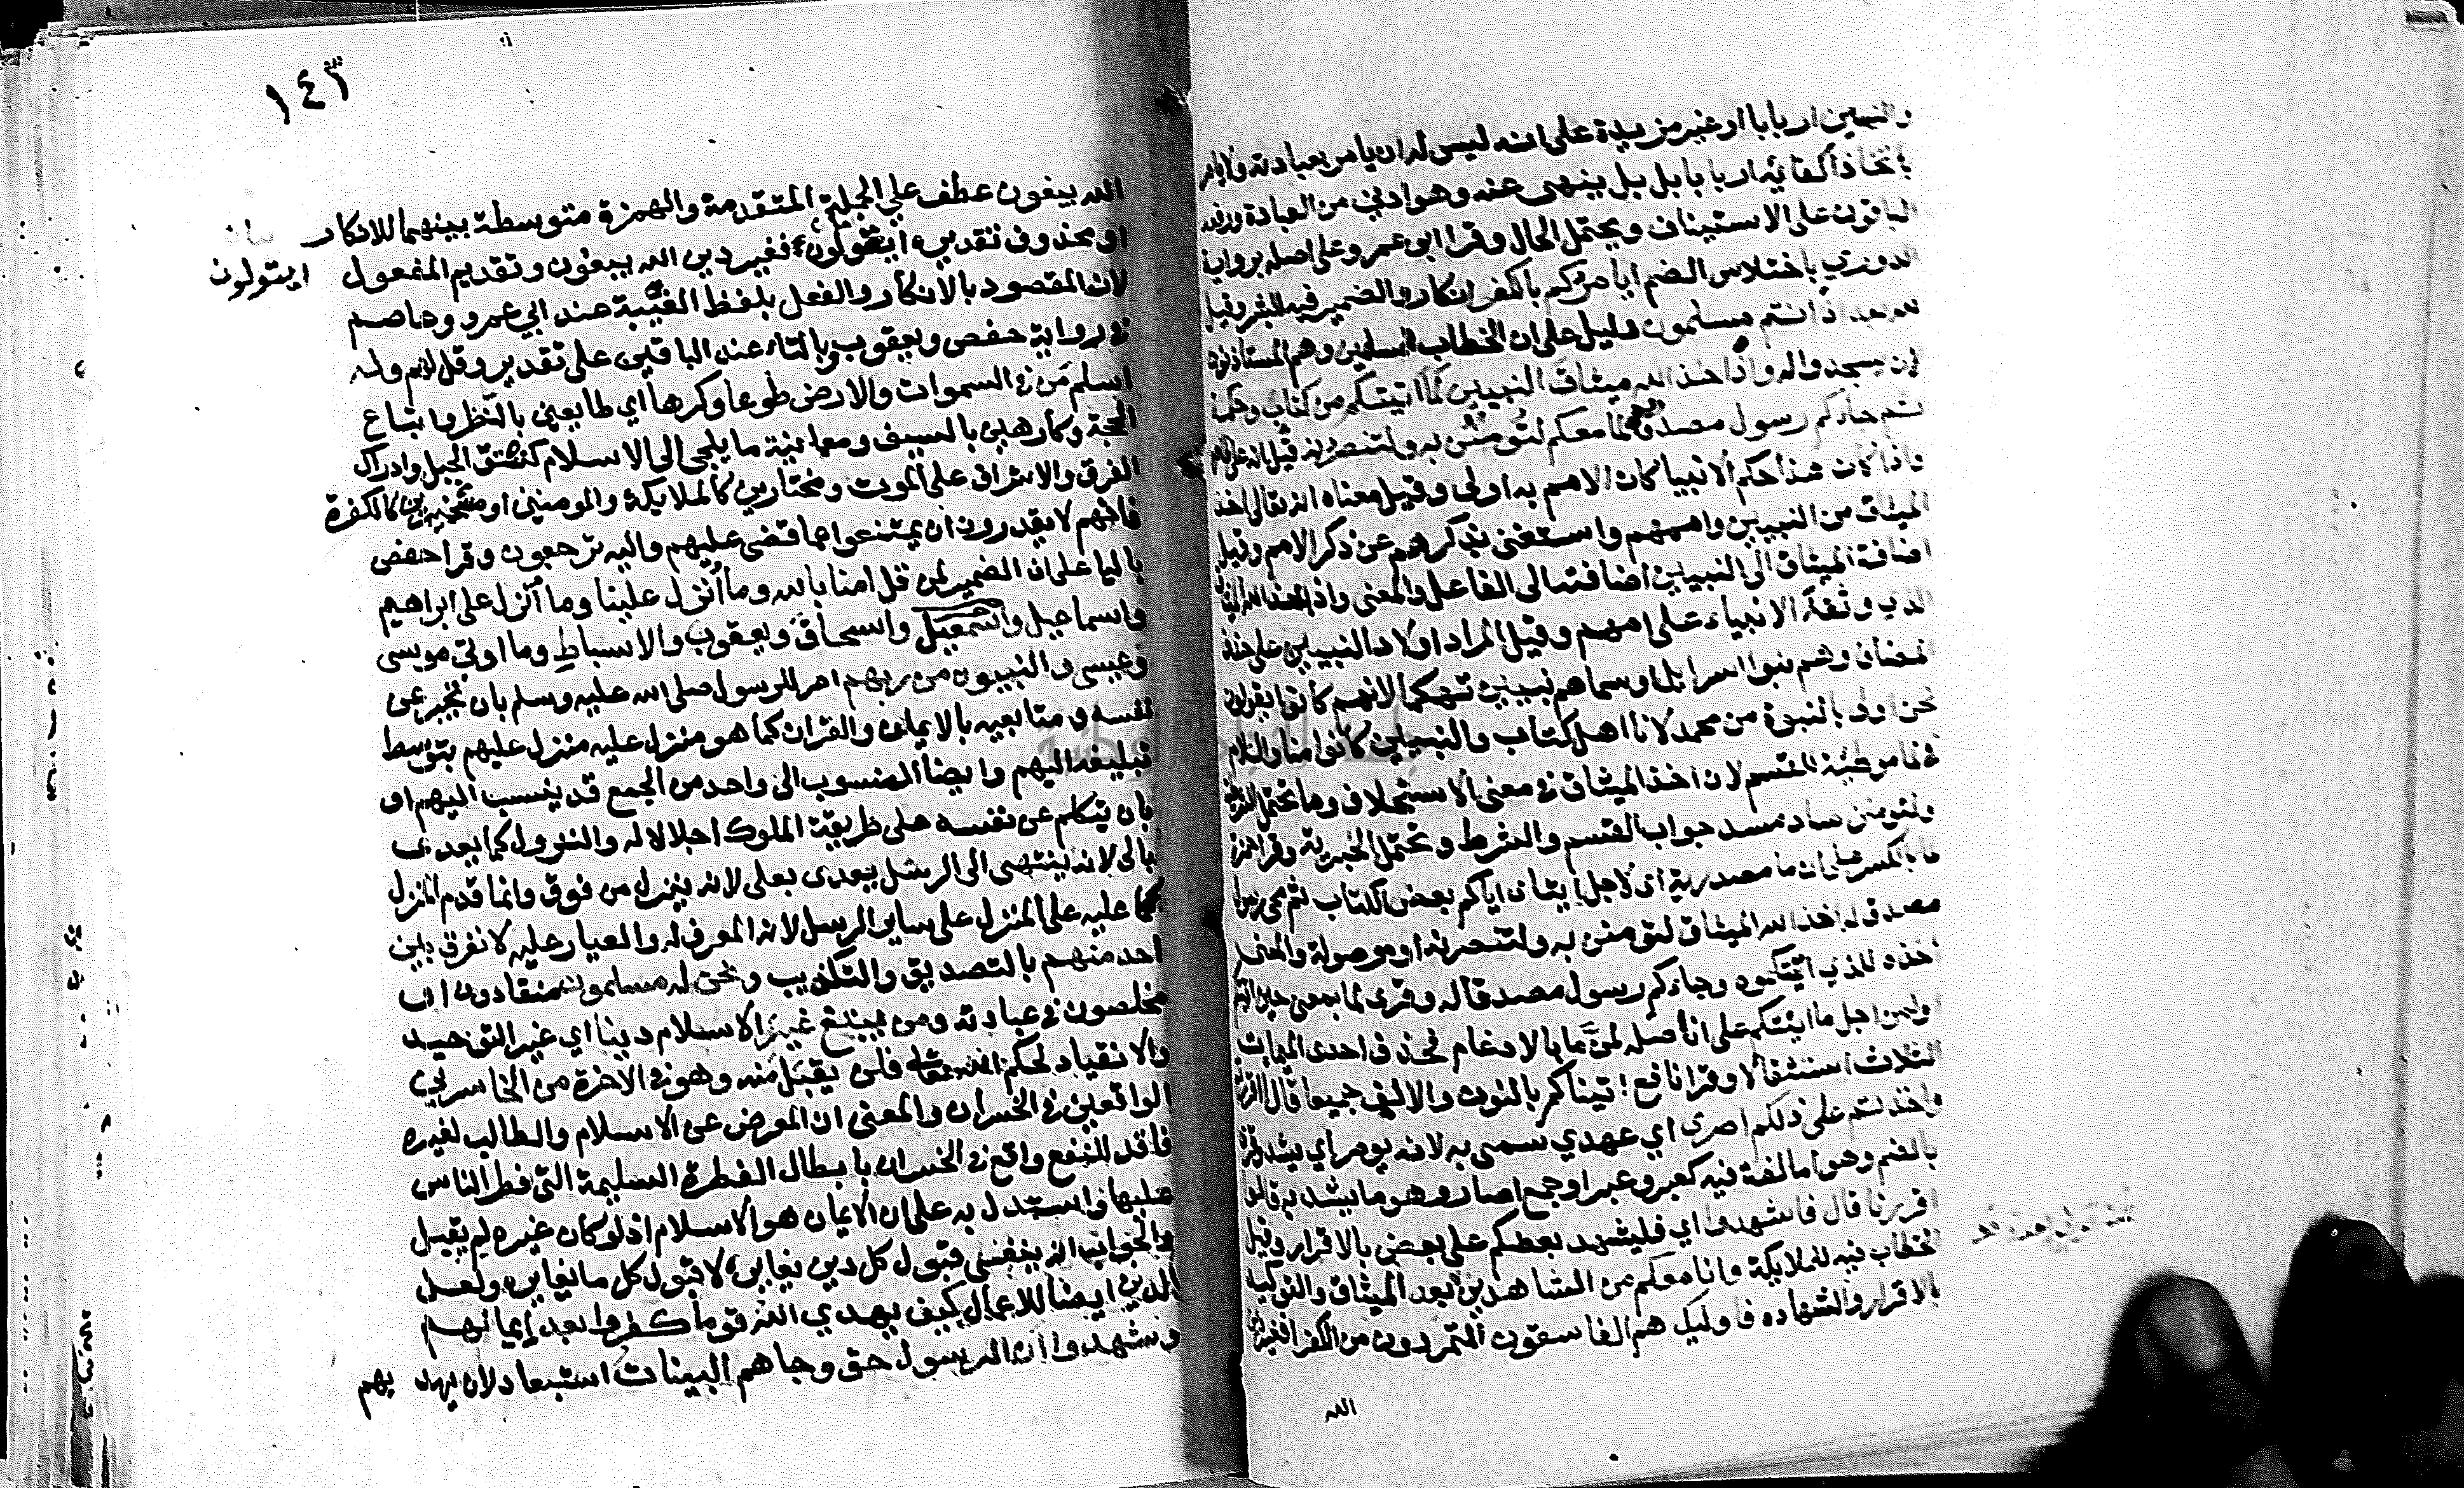 والنبيين اربابا او غير مزيدة على انه ليس له ان يامر بعبادته ولا يامر
باتخاذ اكفائه اربابا بل ينهى عنه وهو ادنى من العبادة ورفعه
الباقون على الاستيناف ويحتمل الحال وقرا ابو عمرو على اصله برواية
الدوري باختلاس الضم ايامركم بالكفر انكار والضمير فيه للبشر وقيل
لله بعد اذ انتم مسلمون دليل على ان الخطاب للمسلمين وهم المستاذنون
لان يسجدوا له واذ اخذ الله ميثاق النبيين لما اتيتكم من كتاب وحكمة
ثم جاءكم رسول مصدق لما معكم لتؤمنن به ولتنصرنه قيل انه على ظاهره
واذا كان هذا حكم الانبيا كان الامم به اولى وقيل معناه انه تعالى اخذ
الميثاق من النبيين واممهم واستغنى بذكرهم عن ذكر الامم وقيل
اضافة الميثاق الى النبيين اضافته الى الفاعل والمعنى واذ اخذ الله الميثاق
الذي وثقه الانبياء على اممهم وقيل المراد اولاد النبيين على حذف
المضاف وهم بنوا اسرائل او سماهم نبيين تهكما لانهم كانوا يقولون
نحن اولى بالنبوة من محمد لانا اهل كتاب والنبيين كانوا منا واللام
في لما موطئة للقسم لان اخذ الميثاق في معنى الاستحلاف وما تحتمل الشرطية
ولتؤمنن ساد مسد جواب القسم والشرط وتحتمل الخبرية وقرا حمزة
لما بالكسر على ان ما مصدرية اي لاجل ايتائى اياكم بعض الكتاب ثم مجى رسول
مصدق له اخذ الله الميثاق لتؤمنن به ولتنصرنه او موصولة والمعنى
اخذه للذي اتيتكموه وجاءكم رسول مصدق له وقرى لما بمعنى حين اتيتكم
او لمن اجل ما اتيتكم على ان اصله لمن ما بالادغام فحذف احدى الميمات
الثلاث استثقالا وقرا نافع اتيناكم بالنون والالف جميعا قال ااقررتم
واخذتم على ذلكم اصرى اي عهدي سمى به لانه يوصر اي يشد وقرى
بالضم وهو اما لغة فيه كعبر وعبر او جمع اصار وهو ما يشد به قالوا
اقررنا قال فاشهدوا اي فليشهد بعضكم على بعض بالاقرار وقيل
الخطاب فيه للملايكة وانا معكم من الشاهدين بعد الميثاق والتوكيد
بالاقرار والشهاده فاوليك هم الفاسقون المتمردون من الكفرا فغير دين
الله
١٤٣
الله يبغون عطف على الجملة المتقدمة والهمزة متوسطة بينهما للانكار
او محذوف تقديره ايتولون فغير دين الله يبغون وتقديم المفعول
ايتولون
لان المقصود بالانكار والفعل بلفظ الغيبة عند ابي عمرو وعاصم
في رواية حفص ويعقوب وبالتاء عند الباقين على تقدير وقل لهم وله
اسلم من في السموات والارض طوعا وكرها اي طايعين بالنظر واتباع
الحجة وكارهين بالسيف ومعاينة ما يلجى الى الاسلام كنتق الجبل وادراك
الغرق والاشراف على الموت ومختارين كالملايكة والمومنين او مسخرين كالكفرة
فانهم لا يقدرون ان يمتنعوا عما قضى عليهم واليه ترجعون وقرا حفص
باليا على ان الضمير لمن قل امنا بالله وما انزل علينا وما انزل على ابراهيم
واسماعيل واسحاق ويعقوب والاسباط وما اوتي موسى
وعيسى والنبيون من ربهم امر للرسول صلى الله عليه وسلم بان يخبر عن
نفسه ومتابعيه بالايمان والقران كما هو منزل عليه منزل عليهم بتوسط
تبليغه اليهم وايضا المنسوب الى واحد من الجمع قد ينسب اليهم او
بان يتكلم عن نفسه على طريقة الملوك اجلالا له والنزول كما يعدى
بالى لانه ينتهى الى الرسل يعدى بعلى لانه ينزل من فوق وانما قدم المنزل
عليه على المنزل على ساير الرسل لانه المعرف له والعيار عليه لا نفرق بين
احد منهم بالتصديق والتكذيب ونحن له مسلمون منقادون او
مخلصون في عبادته ومن يبتغ غير الاسلام دينا اي غير التوحيد
والانقياد لحكم الله تعالى فلن يقبل منه وهو في الاخرة من الخاسرين
الواقعين في الخسران والمعنى ان المعرض عن الاسلام والطالب لغيره
فاقد للنفع واقع في الخسران بابطال الفطرة السليمة التى فطر الناس
عليها واستدل به على ان الايمان هو الاسلام اذ لو كان غيره لم يقبل
والجواب انه ينفي قبول كل دين يغايره لا قبول كل ما يغايره ولعل
الدين ايضا للاعمال كيف يهدي الله قوما كفروا بعد ايمانهم
وشهدوا ان الرسول حق وجاهم البينات استبعاد لان يهديهم